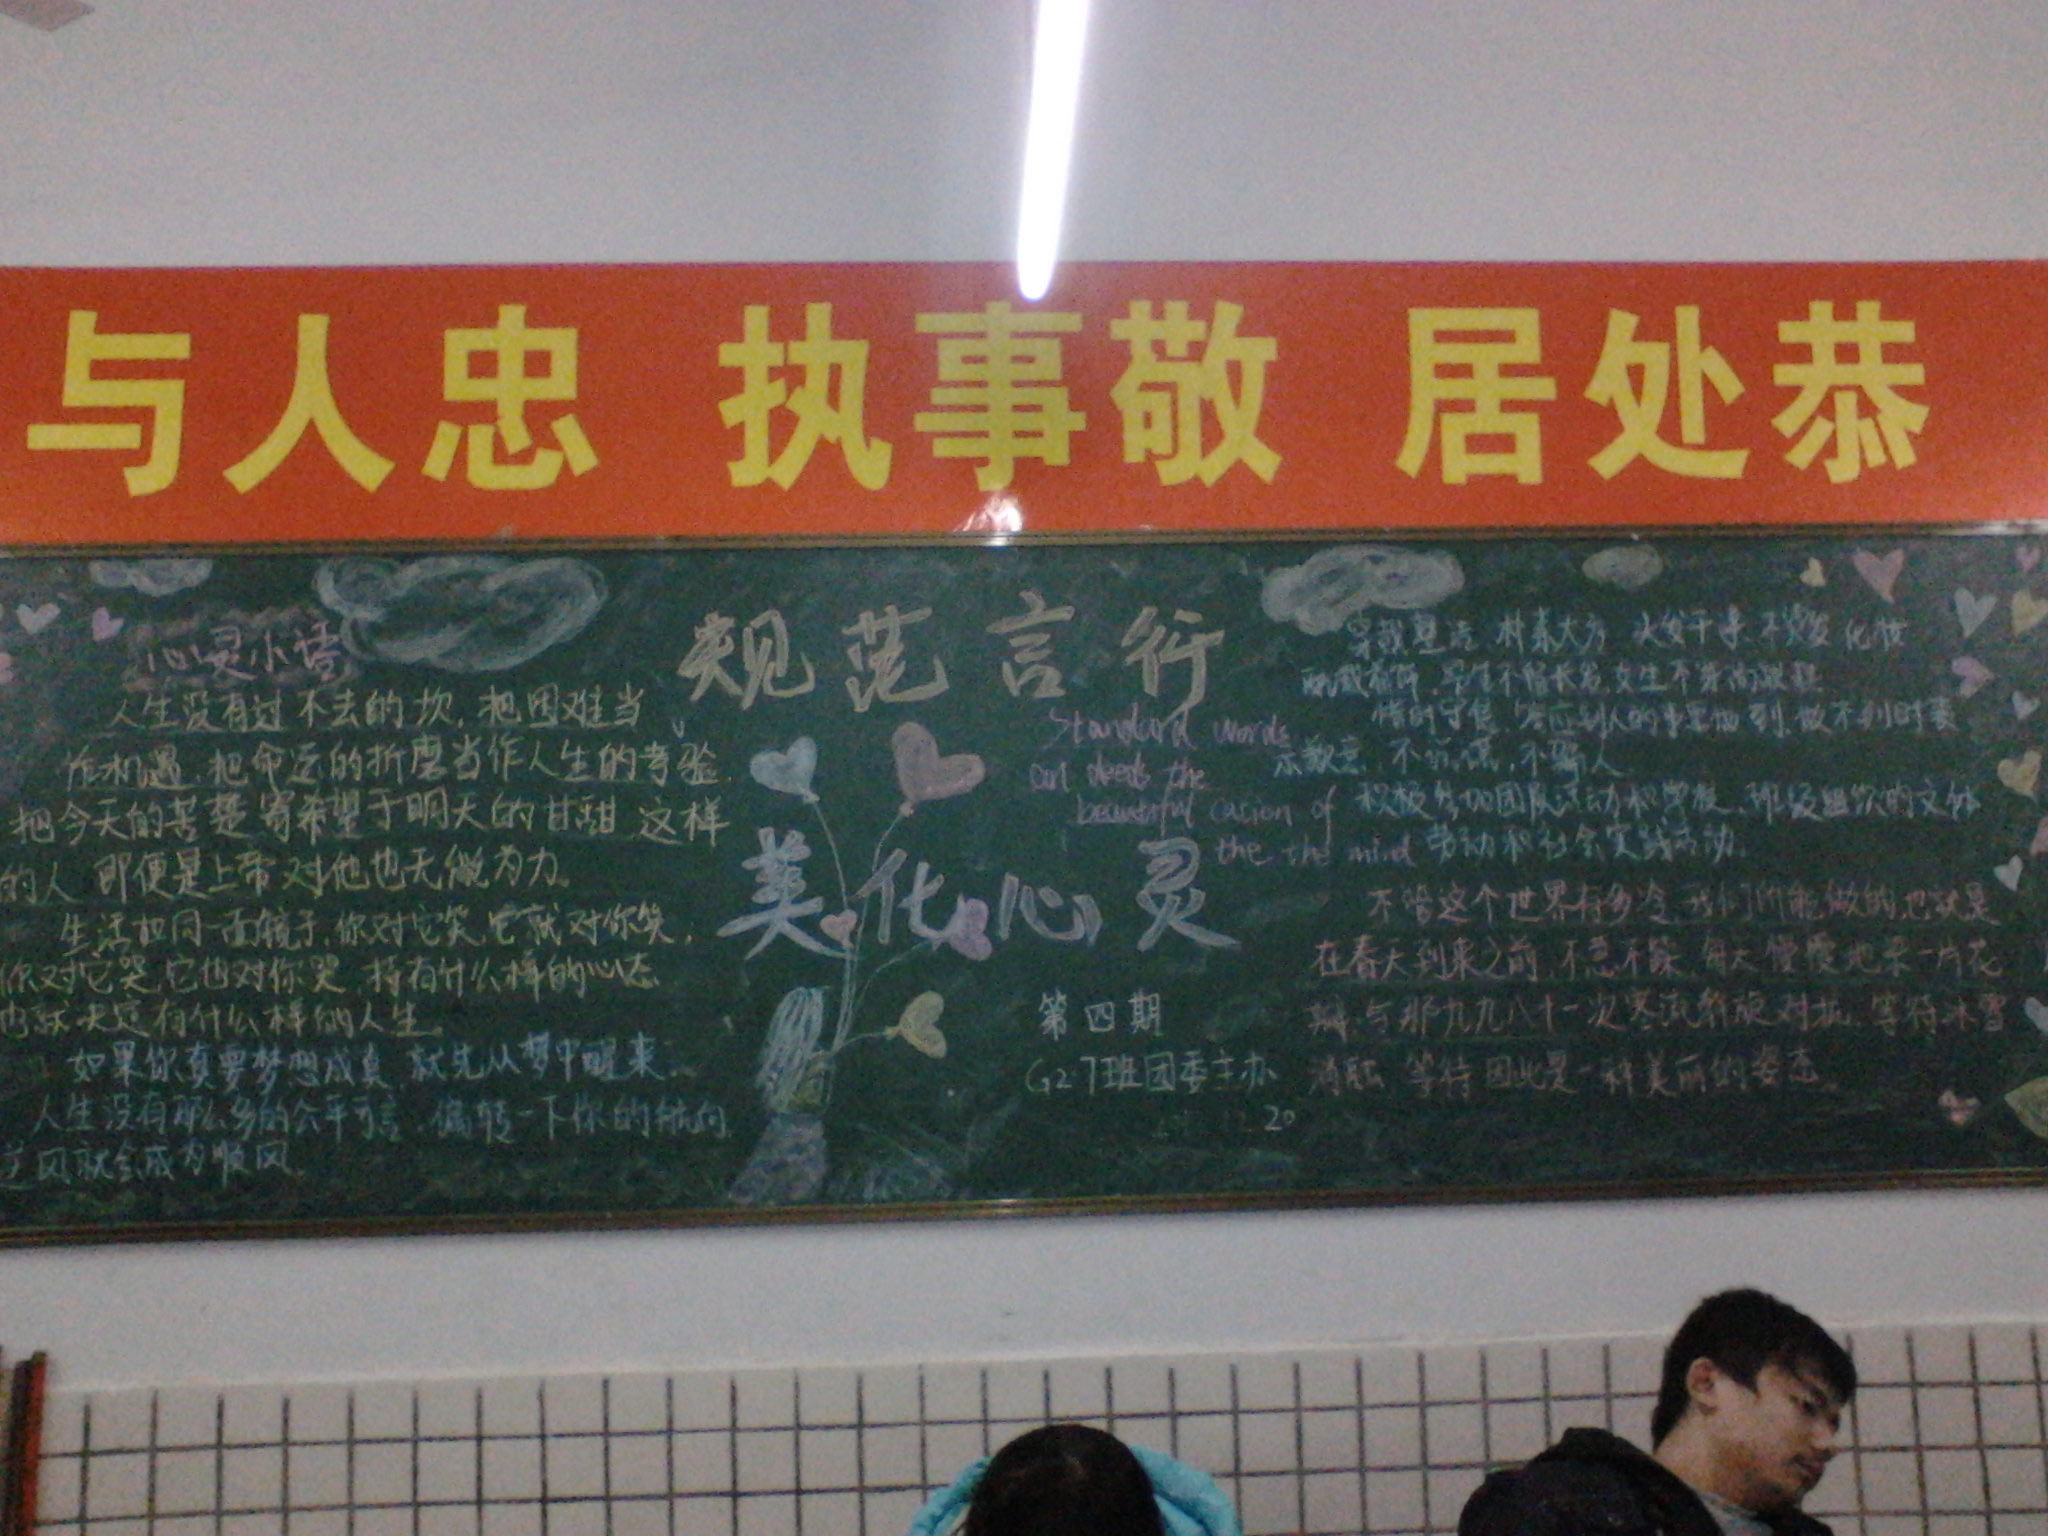 与人忠 执事敬 居处恭
心灵小语
人生没有过不去的坎,把困难当
作机遇,把命运的折磨当作人生的考验,
把今天的苦楚寄希望于明天的甘甜 这样
的人 即便是上帝对他也无能为力。
生活如同一面镜子,你对它笑,它就对你笑,
你对它哭,它也对你哭,持有什么样的心态
也就决定有什么样的人生。
如果你真要梦想成真,就先从梦中醒来。
人生没有那么多的公平可言,偏转一下你的航向,
逆风就会成为顺风
规范言行
Standard words
beautiful of
the the mind
美化心灵
第四期
G27班团委主办
20
大方 干净 不 化妆
不留长发,女生不穿高跟鞋
守信,答应别人的事要做到,做不到时表
示歉意,不 ,不骗人
积极参加团队活动和学校、班级组织的文体
劳动和社会实践活动。
不管这个世界有多冷,我们所能做的,也就是
在春天到来之前,不急不躁,每天慢慢地 一片花
瓣,与那九九八十一次寒流 对抗,等待冰雪
消融,等待因此是一种美丽的姿态。